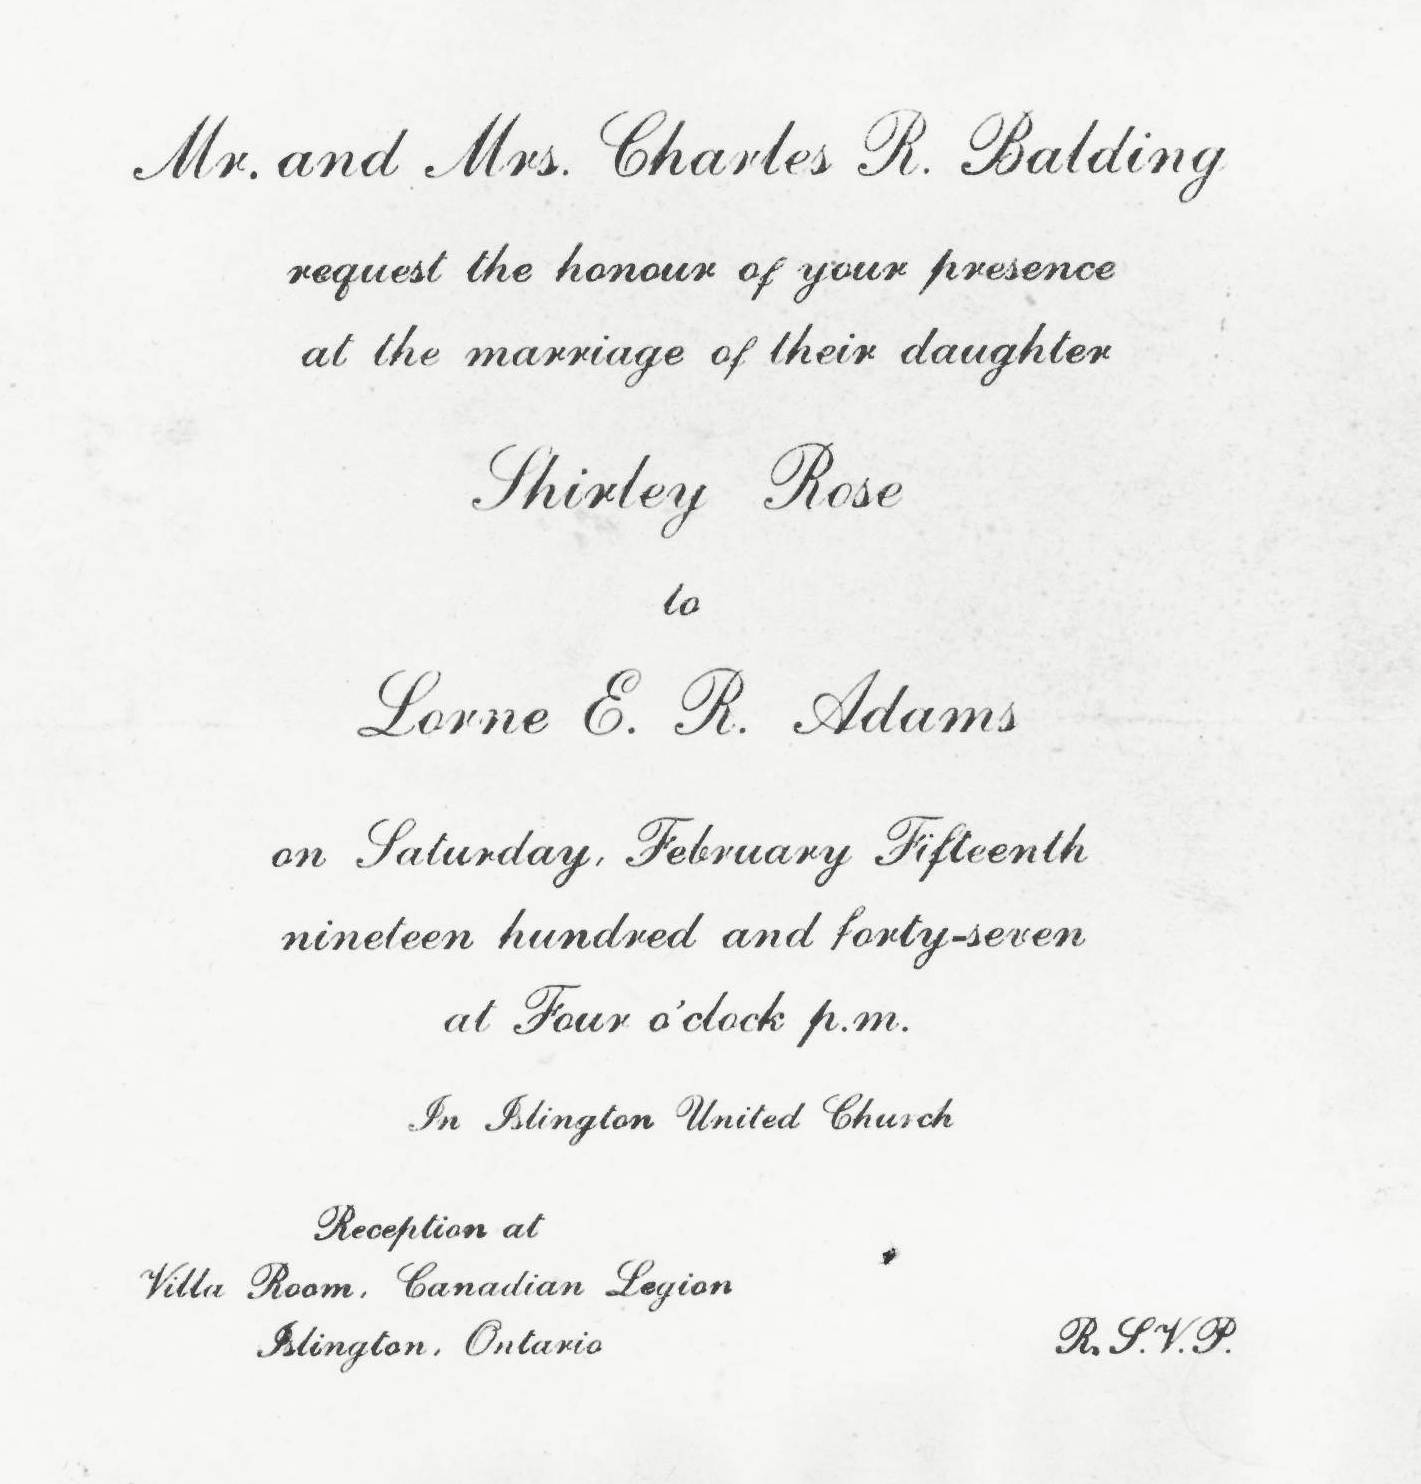 Mr. and Mrs. Charles R. Balding
request the honour of your presence
at the marriage of their daughter
Shirley Rose
to
Lorne E. R. Adams
on Saturday, February Fifteenth
nineteen hundred and forty-seven
at Four o'clock p.m.
In Islington United Church
Reception at
Villa Room, Canadian Legion
Islington, Ontario
R.S.V.P.